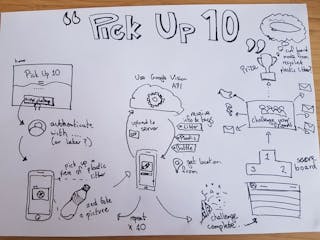 "Pick Up 10"
home
Pick Up 10
authenticate
with ....
(or later?)
pick up
plastic
litter
and take
a picture
Use Google Vision
API
upload to
server
receive
tags
Litter
Plastic
Bottle
get location
from
repeat
x 10
challenge
complete!
Prize
surf board
made from
recycled
plastic litter!
challenge your
friends
score
board
1
2
3